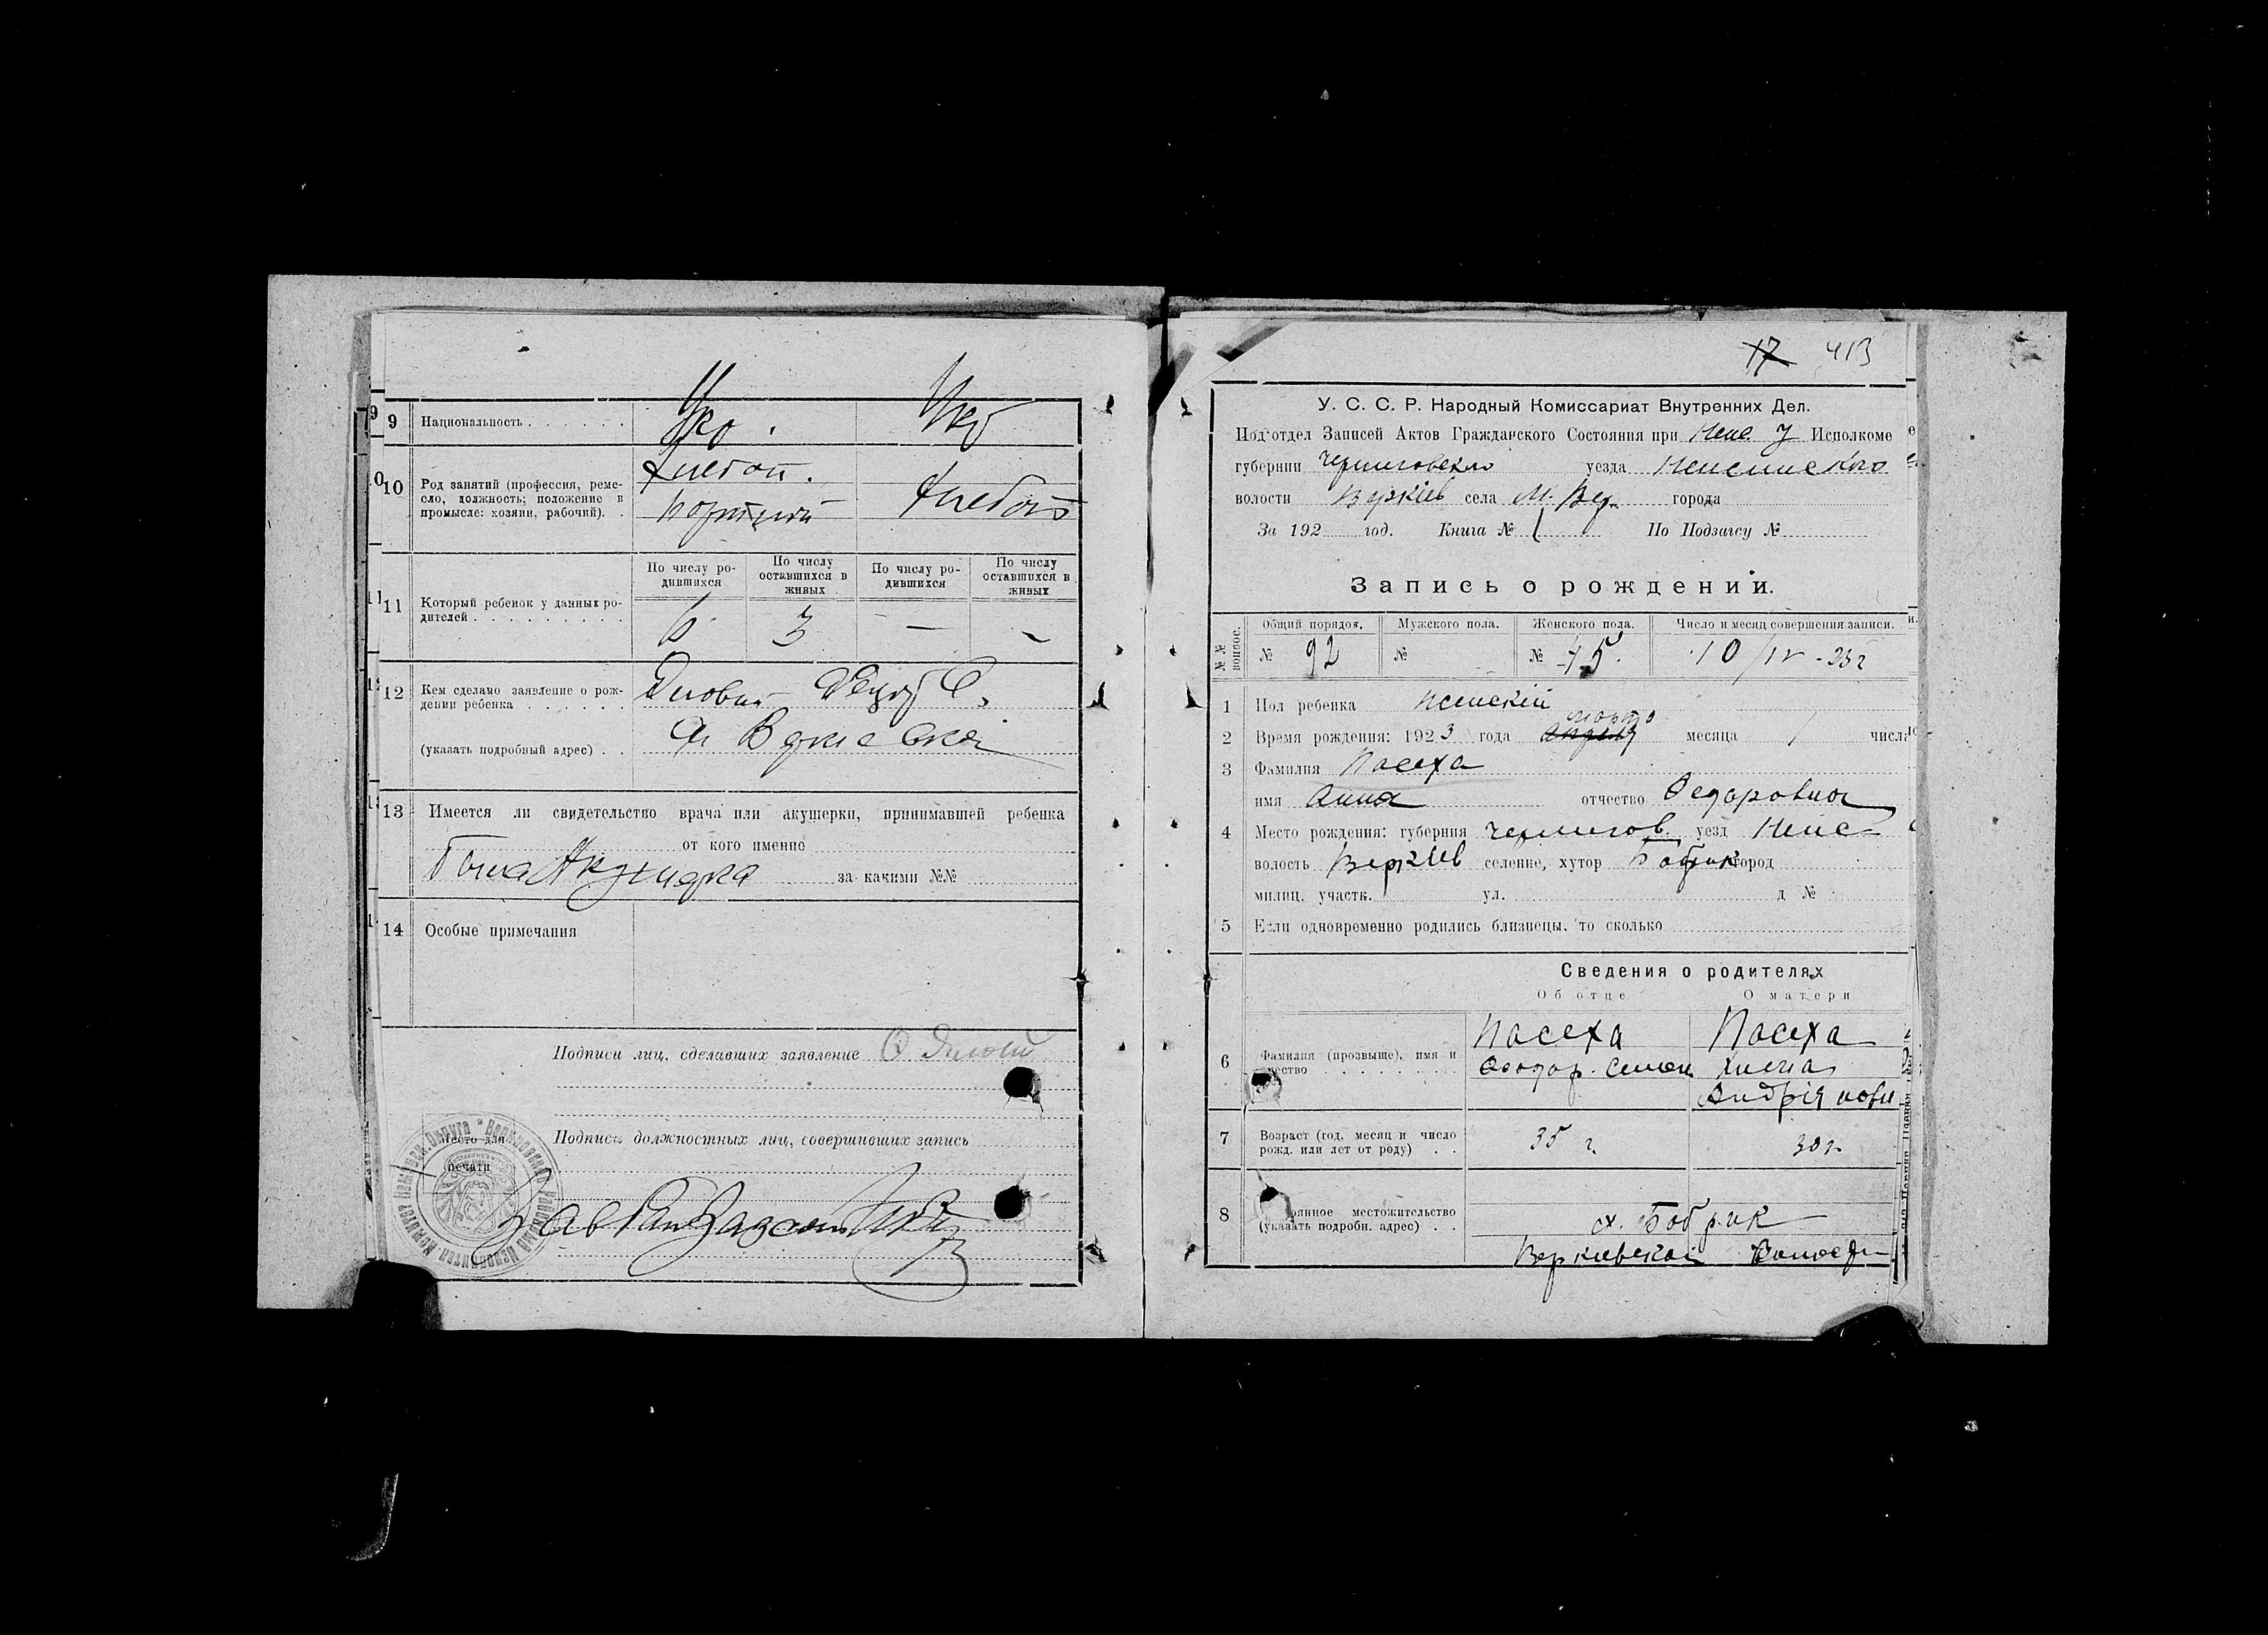 9 Национальность . . . . . . Укр . Укр
10 Род занятий (профессия, реме-
сло, должность; положение в
промысле: хозяин, рабочий). .
Хлебоп. Хлебоп
11 Который ребенок у данных ро-
дителей . . . . . . . . . .
По числу ро-
дившихся
По числу
оставшихся в
живых
По числу ро-
дившихся
По числу
оставшихся в
живых
3 — -
12 Кем сделано заявление о рож-
дении ребенка . . . . . .
(указать подробный адрес) . .
13 Имеется ли свидетельство врача или акушерки, принимавшей ребенка
от кого именно
за какими №№
14 Особые примечания
Подписи лиц, сделавших заявление
Место для
печати
Подписи должностных лиц, совершивших запись
17 413
У. С. С. Р. Народный Комиссариат Внутренних Дел.
Под'отдел Записей Актов Гражданского Состояния при Неж. У Исполкоме
губернии Черниговского уезда Неженского
волости Веркіев села М. Вер. города
За 192 год. Книга № 1 По Подзагсу №
Запись о рождении.
№№ вопрос.
Общий порядок. Мужского пола. Женского пола. Число и месяц совершения записи.
№ 92 № № 45. 10/IV - 23 г
1 Пол ребенка женскій
марта
2 Время рождения: 1923 года апреля месяца 1 числа
3 Фамилия Пасеха
имя Анна отчество Федоровна
4 Место рождения: губерния Чернигов. уезд Неж
волость Веркіев селение, хутор Бобрик город
милиц. участк. ул. д №
5 Если одновременно родились близнецы, то сколько
Сведения о родителях
Об отце О матери
6 Фамилия (прозвище), имя и
отчество . . . . . . . .
Пасеха Пасеха
Феодор. Семен
Андріянови
7 Возраст (год, месяц и число
рожд. или лет от роду) . .
35 г. 30 г.
8 местожительство
(указать подробн. адрес) . .
х. Бобрик
Веркиевской Волости